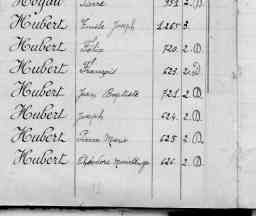 Hubert Emile Joseph 1265 3.
Hubert Félix 720. 2. D
Hubert François 623. 2. D
Hubert Jean Baptiste 721. 2. D
Hubert Joseph 624. 2. D
Hubert Pierre Marie 625. 2. D
Hubert Théodore 626. 2. D